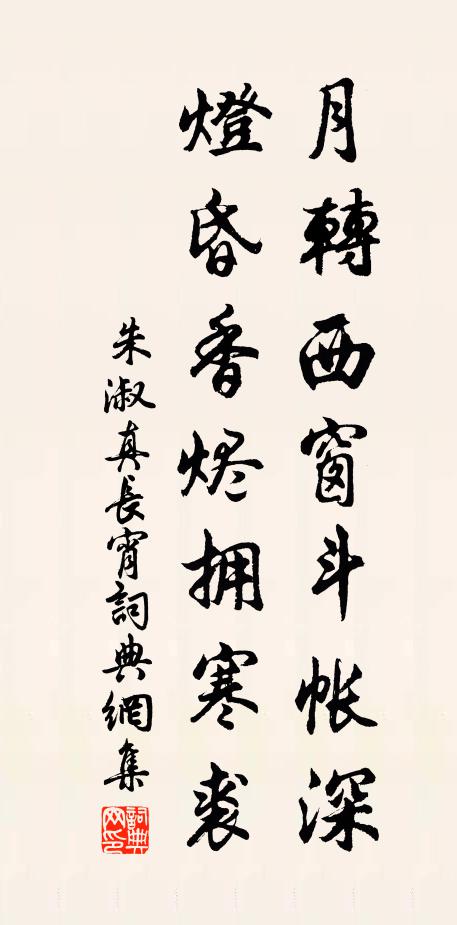 月轉西窗斗帳深
燈昏香烬拥寒裘
朱淑真長宵詞典網集
詞典网印